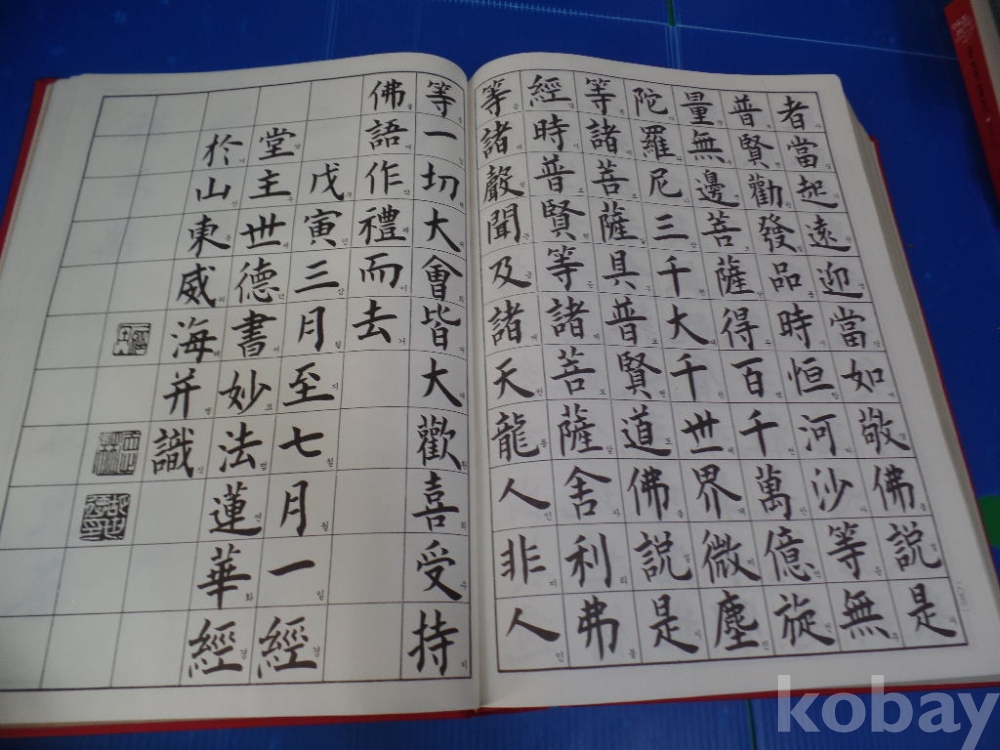 者當起遠迎當如敬佛說是
普賢勸發品時恒河沙等無
量無邊菩薩得百千萬億旋
陀羅尼三千大千世界微塵
等諸菩薩具普賢道佛說是
經時普賢等諸菩薩舍利弗
等諸聲聞及諸天龍人非人
等一切大會皆大歡喜受持
佛語作禮而去
戊寅三月至七月一經
堂主世德書妙法蓮華經
於山東威海并識
kobay